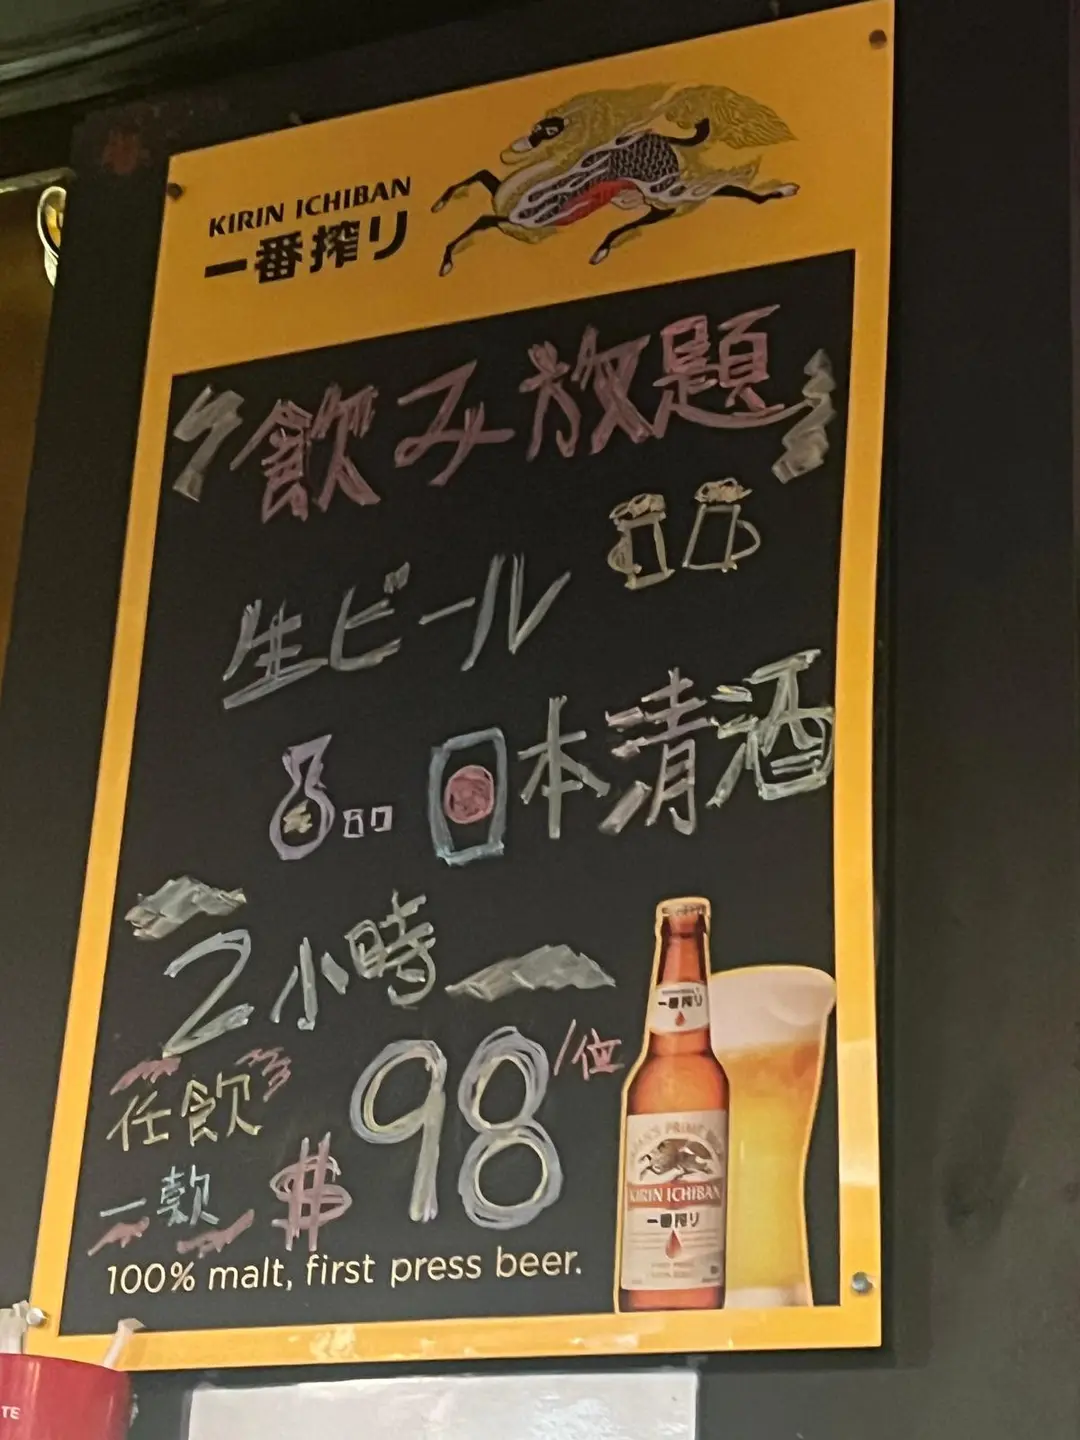 KIRIN ICHIBAN
一番搾り
飲み放題
生ビール
日本清酒
2小時
任飲
一款
$98/位
100% malt, first press beer.
一番搾り
KIRIN ICHIBAN
一番搾り
TE